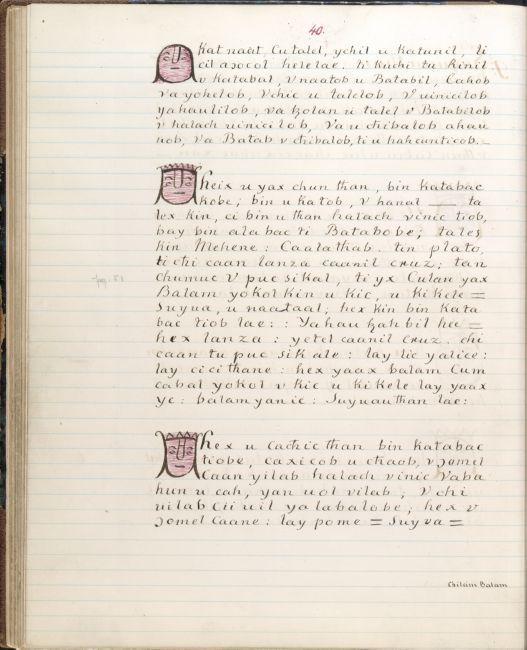 40.
katnaat, Cu talel, ychil u katunil, li
cil aɔocol helelae. ti kuchi tu kinil
v katabal, V naatob u Batabil, Cahob
va yohelob, Vchic u talelob, V uinicilob
yahaulilob, va ɔolan u talel v Batabilob
v halach uinicilob, Va u chibalob ahau
uob, Va Batab v chibalob, ti u hahcunticob.=
heix u yax chun than, bin katabac
kobe; bin u katob, V hanal — ta
lex kin, ci bin u than halach vinic tiob,
bay bin alabac ti Batabobe; tales
kin Mehene: Caalathab tin plato,
ti chi caan lanza caanil cruz; tan
chumuc V puc sikal, ti yx Culan yax
Balam yokol kin u kic, u kikele =
Suyua, u naataal; hex kin bin kata
bac tiob lae:: Yahau kahbil he =
hex lanza: yetel caanil cruz. chi
caan tu puc sikale: lay lic yalice:
lay cicithane: hex yaax balam Cum
cabal yokol v kic u kikele lay yaax
yc: balam yanic: Suyuauthan lae:
hex u cachic than bin katabac
tiobe, caxicob u chaob, v ɔomel
Caan yilab halach vinic Vaba
hun u cah, yan uol vilab, V chi
uilab Cii uil yalabalobe; hex v
ɔomel Caane: lay pome = Suyva =
pg. 31
Chilám Balam